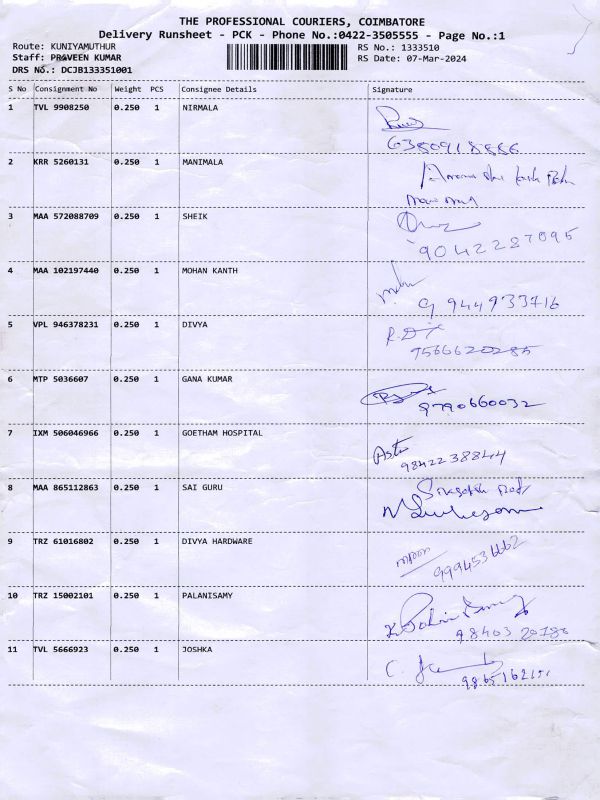 THE PROFESSIONAL COURIERS, COIMBATORE
Delivery Runsheet - PCK - Phone No.:0422-3505555 - Page No.:1
Route: KUNIYAMUTHUR
RS No.: 1333510
Staff: PRAVEEN KUMAR
RS Date: 07-Mar-2024
DRS No.: DCJB133351001
S No Consignment No Weight PCS Consignee Details Signature
1 TVL 9908250 0.250 1 NIRMALA
6380918886
2 KRR 5260131 0.250 1 MANIMALA
3 MAA 572088709 0.250 1 SHEIK
9042287095
4 MAA 102197440 0.250 1 MOHAN KANTH
9944933716
5 VPL 946378231 0.250 1 DIVYA
9566620285
6 MTP 5036607 0.250 1 GANA KUMAR
9790660032
7 IXM 506046966 0.250 1 GOETHAM HOSPITAL
9842238844
8 MAA 865112863 0.250 1 SAI GURU
9 TRZ 61016802 0.250 1 DIVYA HARDWARE
9994536662
10 TRZ 15002101 0.250 1 PALANISAMY
11 TVL 5666923 0.250 1 JOSHKA